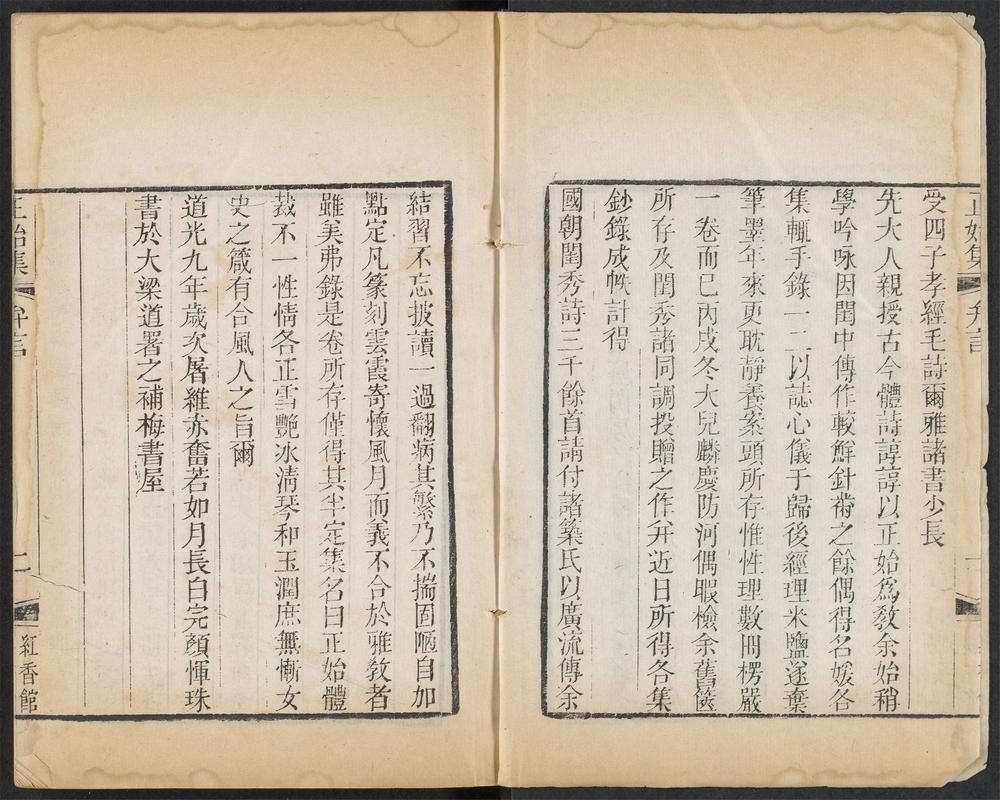 正始集 弁言 一
受四子孝經毛詩爾雅諸書少長
先大人親授古今體詩諄諄以正始爲敎余始稍
學吟咏因閨中傳作較鮮針黹之餘偶得名媛各
集輒手錄一二以誌心儀于歸後經理米鹽遂棄
筆墨年來更耽靜養案頭所存惟性理數冊楞嚴
一卷而巳丙戌冬大兒麟慶防河偶暇檢余舊篋
所存及閨秀諸同調投贈之作弁近日所得各集
鈔錄成帙計得
國朝閨秀詩三千餘首請付諸築氏以廣流傳余
結習不忘披讀一過翻病其繁乃不揣固陋自加
點定凡篆刻雲霞寄懷風月而義不合於雅敎者
雖美弗錄是卷所存僅得其半定集名曰正始體
裁不一性情各正雪艷冰淸琴和玉潤庶無慚女
史之箴有合風人之旨爾
道光九年歲次屠維赤奮若如月長白完顏惲珠
書於大梁道署之補梅書屋
正始集 弁言 二 紅香館